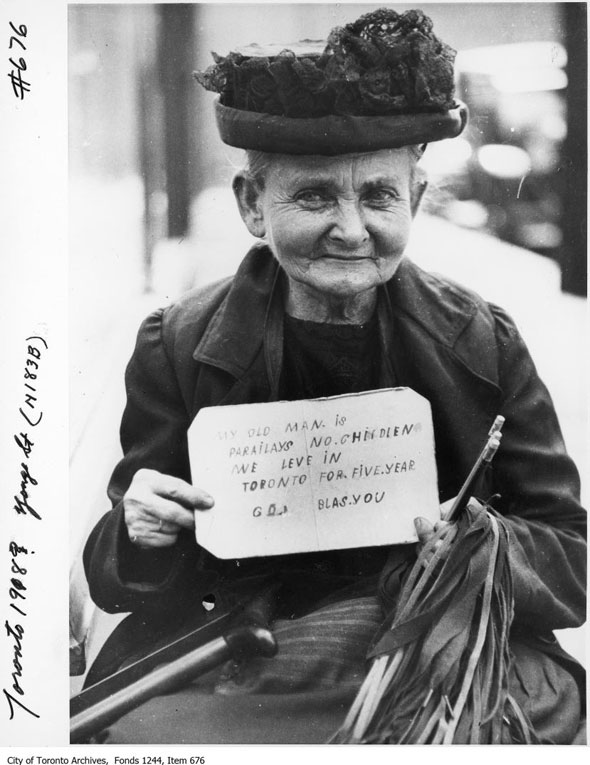 #676
Toronto 1908? Yonge St (N183B)
MY OLD MAN. IS
PARAILAYS NO. CHIEDLEN
WE LEVE IN
TORONTO FOR. FIVE. YEAR
BLAS. YOU
City of Toronto Archives, Fonds 1244, Item 676